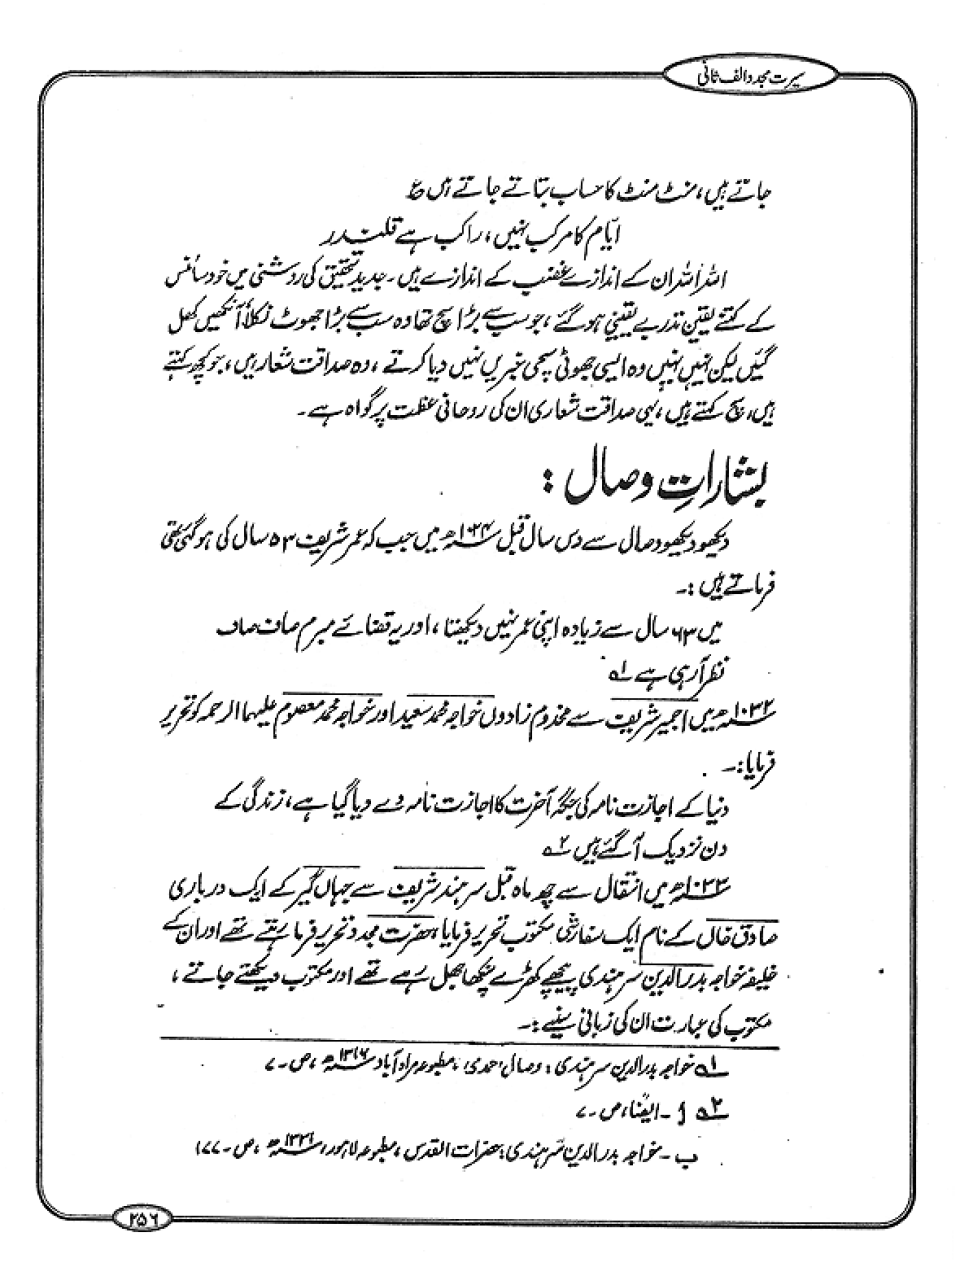 سیرت مجدد الف ثانی
جاتے ہیں، منٹ منٹ کا حساب بتاتے جاتے ہیں ؏
ایّام کا مرکب نہیں، راکب ہے قلندر
اللہ اللہ ان کے اندازے غضب کے اندازے ہیں۔ جدید تحقیق کی روشنی میں خود سائنس
کے کتنے یقین نذرِ بے یقینی ہو گئے، جو سب سے بڑا سچ تھا وہ سب سے بڑا جھوٹ نکلا، آنکھیں کھل
گئیں لیکن نہیں نہیں وہ ایسی جھوٹی سچی خبریں نہیں دیا کرتے، وہ صداقت شعار ہیں، جو کچھ کہتے
ہیں، سچ کہتے ہیں، یہی صداقت شعاری ان کی روحانی عظمت پر گواہ ہے۔
بشاراتِ وصال :
دیکھو دیکھو وصال سے دس سال قبل ۱۰۲۴ھ میں جب کہ عمر شریف ۵۳ سال کی ہو گئی تھی
فرماتے ہیں :۔
میں ۶۳ سال سے زیادہ اپنی عمر نہیں دیکھتا، اور یہ قضائے مبرم صاف صاف
نظر آرہی ہے ۱؎
۱۰۳۲ھ میں اجمیر شریف سے مخدوم زادوں خواجہ محمد سعید اور خواجہ محمد معصوم علیہما الرحمہ کو تحریر
فرمایا:۔
دنیا کے اجازت نامہ کی جگہ آخرت کا اجازت نامہ دے دیا گیا ہے، زندگی کے
دن نزدیک آگئے ہیں ۲؎
۱۰۳۳ھ میں انتقال سے چھ ماہ قبل سرہند شریف سے جہاں گیر کے ایک درباری
صادق خاں کے نام ایک سفارشی مکتوب تحریر فرمایا، حضرت مجدد تحریر فرما رہے تھے اور ان کے
خلیفہ خواجہ بدرالدین سرہندی پیچھے کھڑے پنکھا جھل رہے تھے اور مکتوب دیکھتے جاتے،
مکتوب کی عبارت ان کی زبانی سنیے :۔
۱؎ خواجہ بدرالدین سرہندی : وصال احمدی، مطبوعہ مرادآباد ۱۳۱۶ھ، ص۔۷
۲؎ أ۔ ایضًا، ص۔۷
ب۔ خواجہ بدرالدین سرہندی : حضرات القدس، مطبوعہ لاہور، ۱۳۴۱ھ، ص۔۱۷۷
۲۵۶